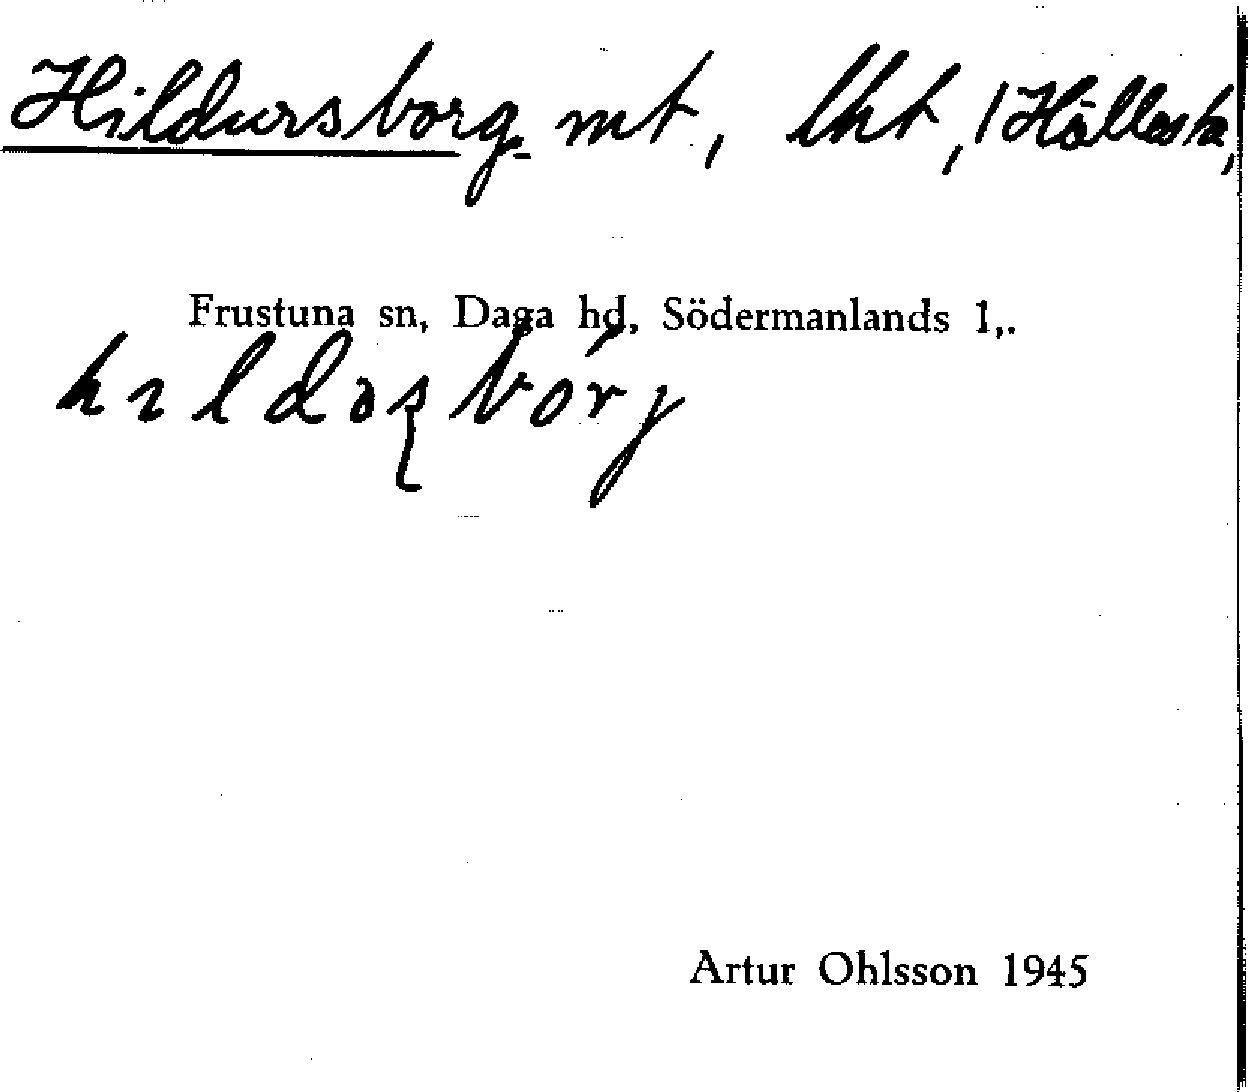 Hildursborg mt, lht, / Hållesta,
Frustuna sn, Daga hd, Södermanlands l,.
Artur Ohlsson 1945